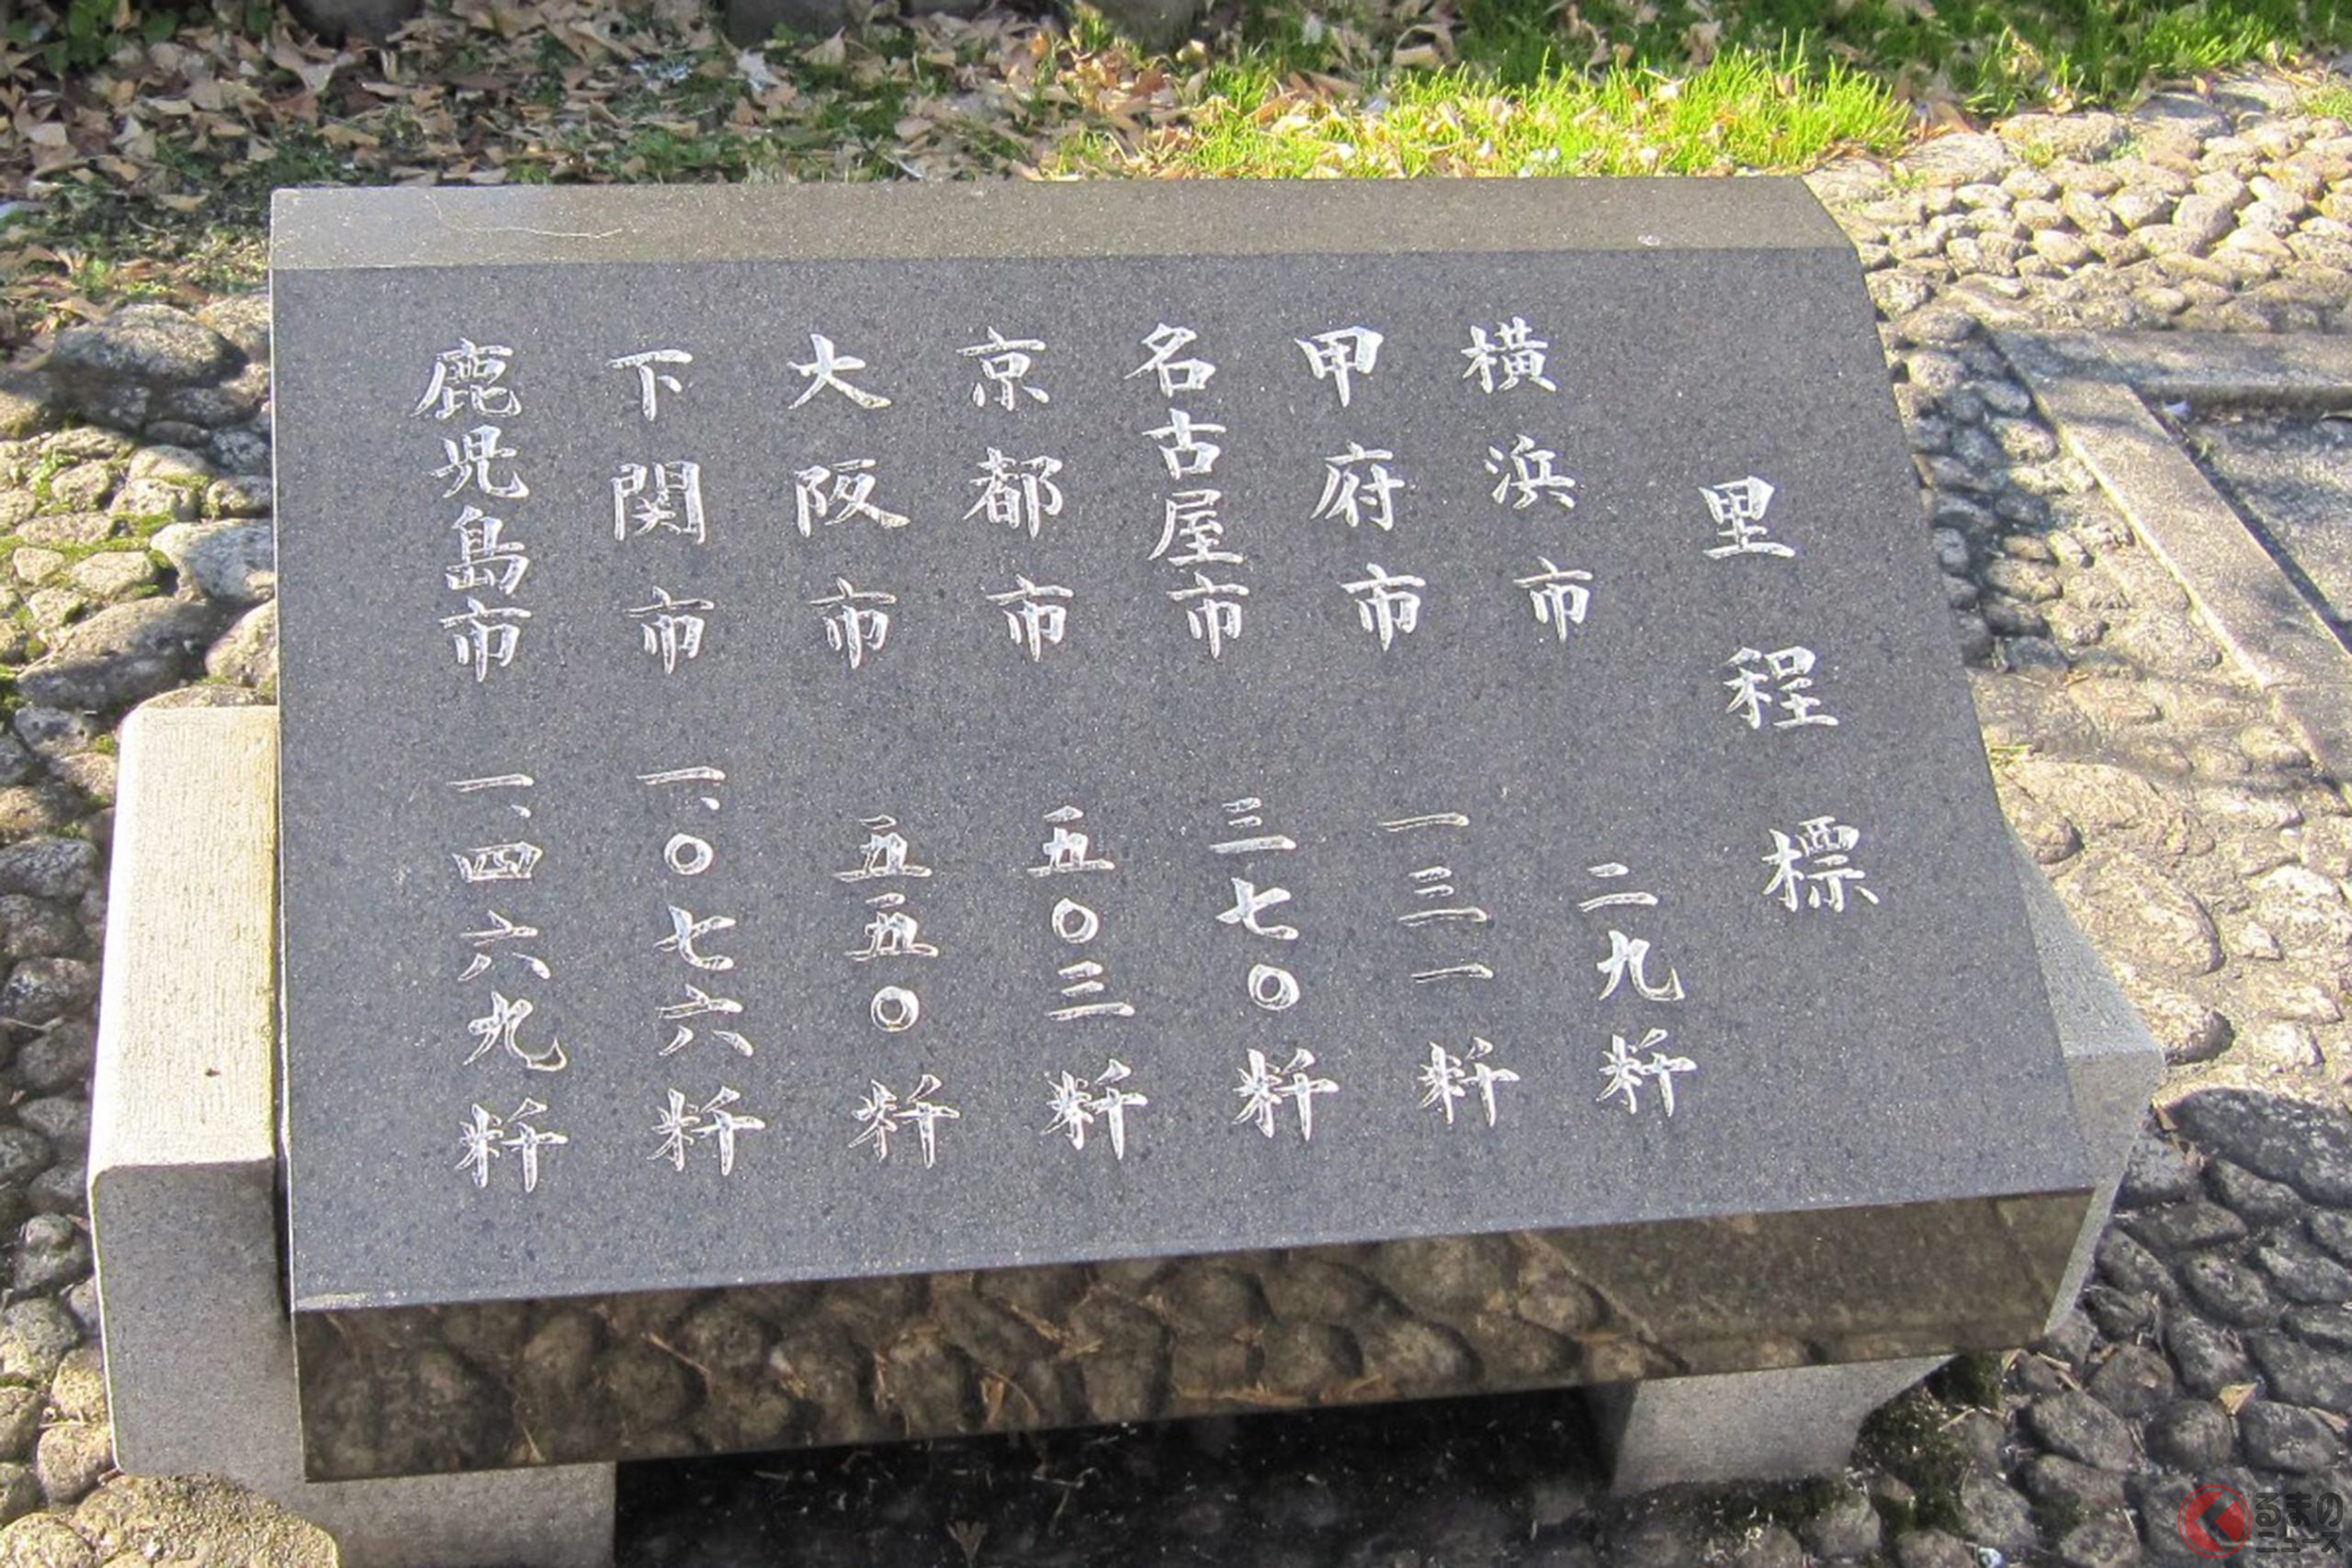 里程標
横浜市 二九粁
甲府市 一三一粁
名古屋市 三七〇粁
京都市 五〇三粁
大阪市 五五〇粁
下関市 一、〇七六粁
鹿児島市 一、四六九粁
くるまの
ニュース